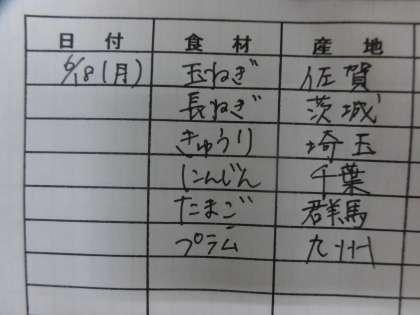 日付 食材 産地
6/18(月) 玉ねぎ 佐賀
長ねぎ 茨城
きゅうり 埼玉
にんじん 千葉
たまご 群馬
プラム 九州